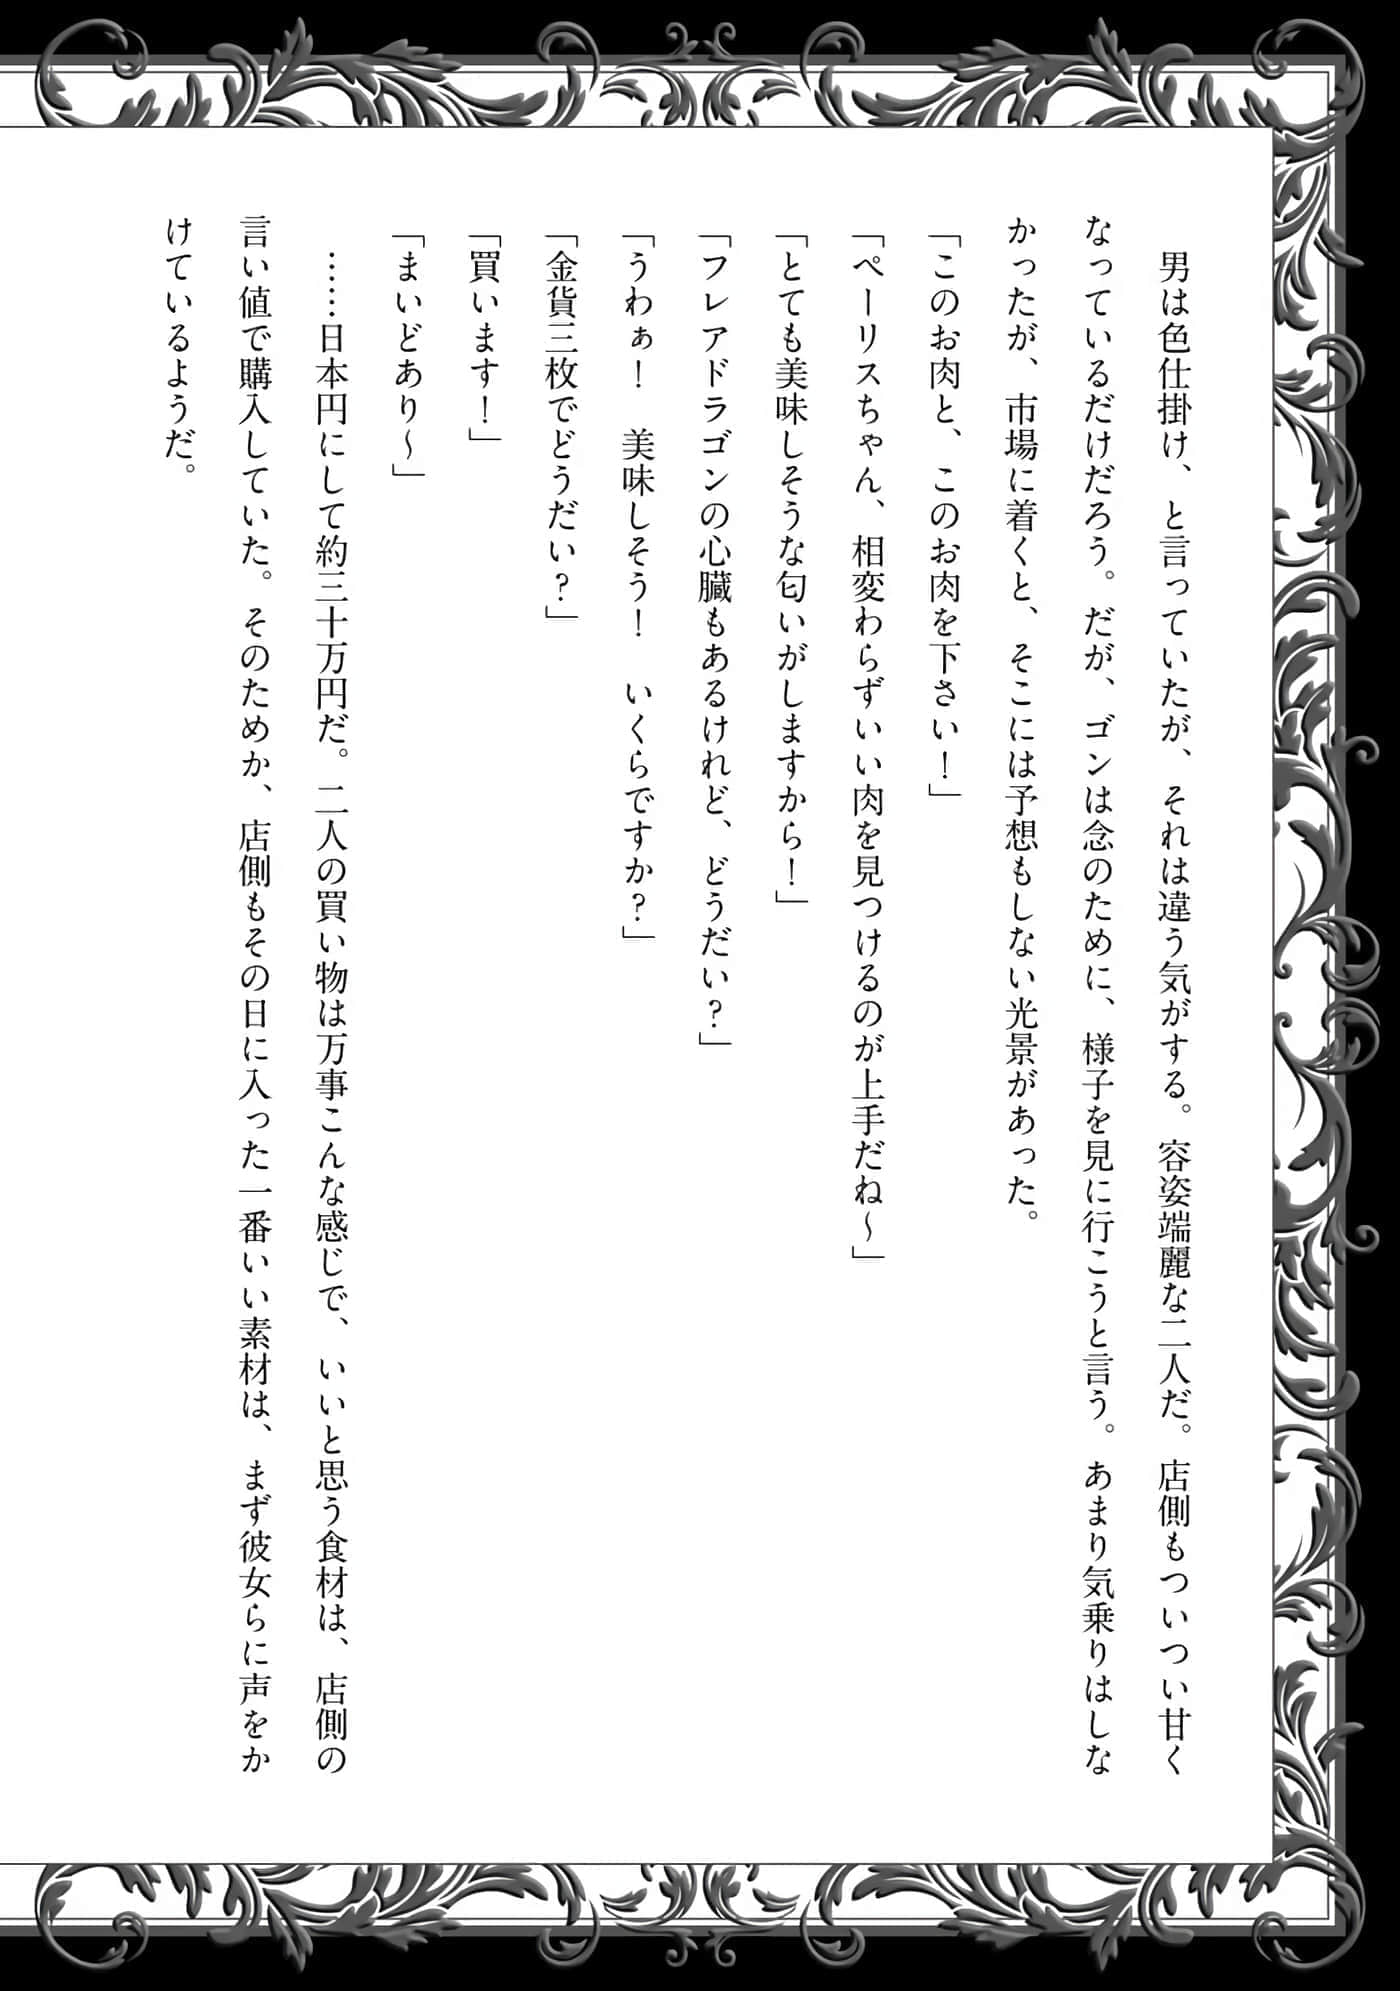 男は色仕掛け、と言っていたが、それは違う気がする。容姿端麗な二人だ。店側もついつい甘く
なっているだけだろう。だが、ゴンは念のために、様子を見に行こうと言う。あまり気乗りはしな
かったが、市場に着くと、そこには予想もしない光景があった。
「このお肉と、このお肉を下さい！」
「ペーリスちゃん、相変わらずいい肉を見つけるのが上手だね～」
「とても美味しそうな匂いがしますから！」
「フレアドラゴンの心臓もあるけれど、どうだい？」
「うわぁ！　美味しそう！　いくらですか？」
「金貨三枚でどうだい？」
「買います！」
「まいどあり～」
　……日本円にして約三十万円だ。二人の買い物は万事こんな感じで、いいと思う食材は、店側の
言い値で購入していた。そのためか、店側もその日に入った一番いい素材は、まず彼女らに声をか
けているようだ。